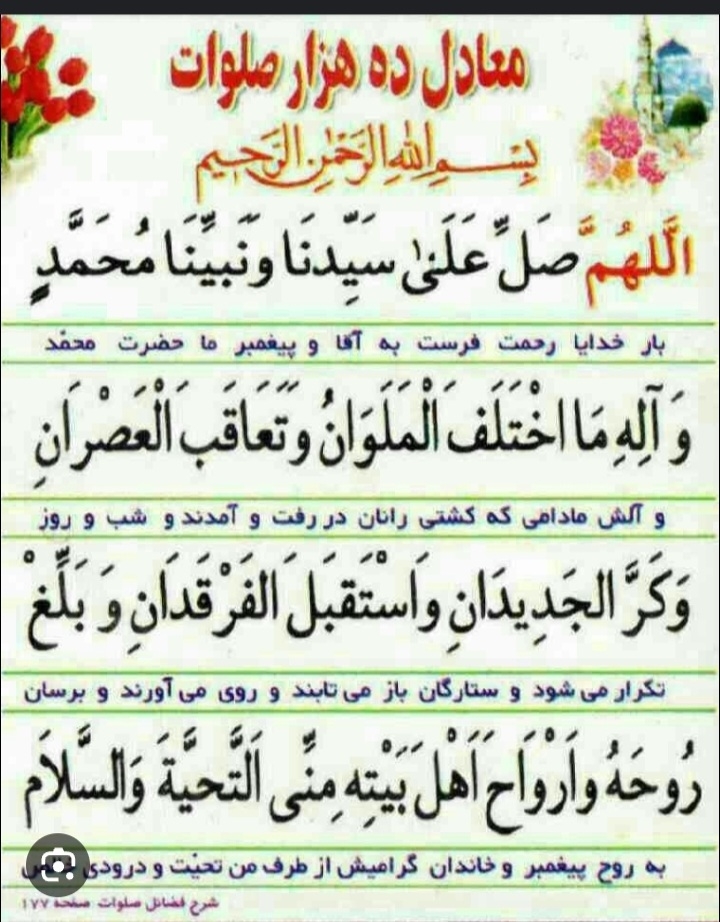 معادل ده هزار صلوات
بِسْمِ اللهِ الرَّحْمٰنِ الرَّحیمِ
اَللّٰهُمَّ صَلِّ عَلَىٰ سَيِّدنَا وَنَبيِّنَا مُحَمَّدٍ
بار خدایا رحمت فرست به آقا و پیغمبر ما حضرت محمّد
وَ آلِهِ مَا اخْتَلَفَ الْمَلَوَانُ وَتَعَاقَبَ الْعَصْرَانِ
و آلش مادامی که کشتی رانان در رفت و آمدند و شب و روز
وَكَرَّ الجَدِيدَانِ وَاسْتَقبَلَ الفَرْقَدَانِ وَ بَلِّغْ
تکرار می شود و ستارگان باز می تابند و روی می آورند و برسان
رُوحَهُ وَاَرْوَاحَ اَهْلَ بَيْتِه مِنِّى اَلتَّحيَّةَ وَالسَّلاَم
به روح پیغمبر و خاندان گرامیش از طرف من تحیّت و درودی
شرح فضائل صلوات صفحه ۱۷۷